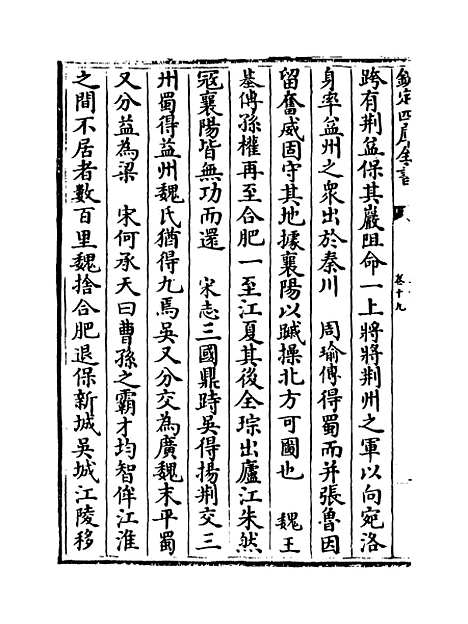 欽定四庫全書
卷十九
跨有荆益保其巖阻命一上將將荆州之軍以向宛洛
身率益州之衆出於秦川　周瑜傳得蜀而并張魯因
留奮威固守其地據襄陽以蹴操北方可圖也　魏王
基傳孫權再至合肥一至江夏其後全琮出廬江朱然
冦襄陽皆無功而還　宋志三國鼎時吳得揚荆交三
州蜀得益州魏氏猶得九焉吳又分交為廣魏末平蜀
又分益為梁　宋何承天曰曹孫之霸才均智侔江淮
之間不居者數百里魏捨合肥退保新城吳城江陵移